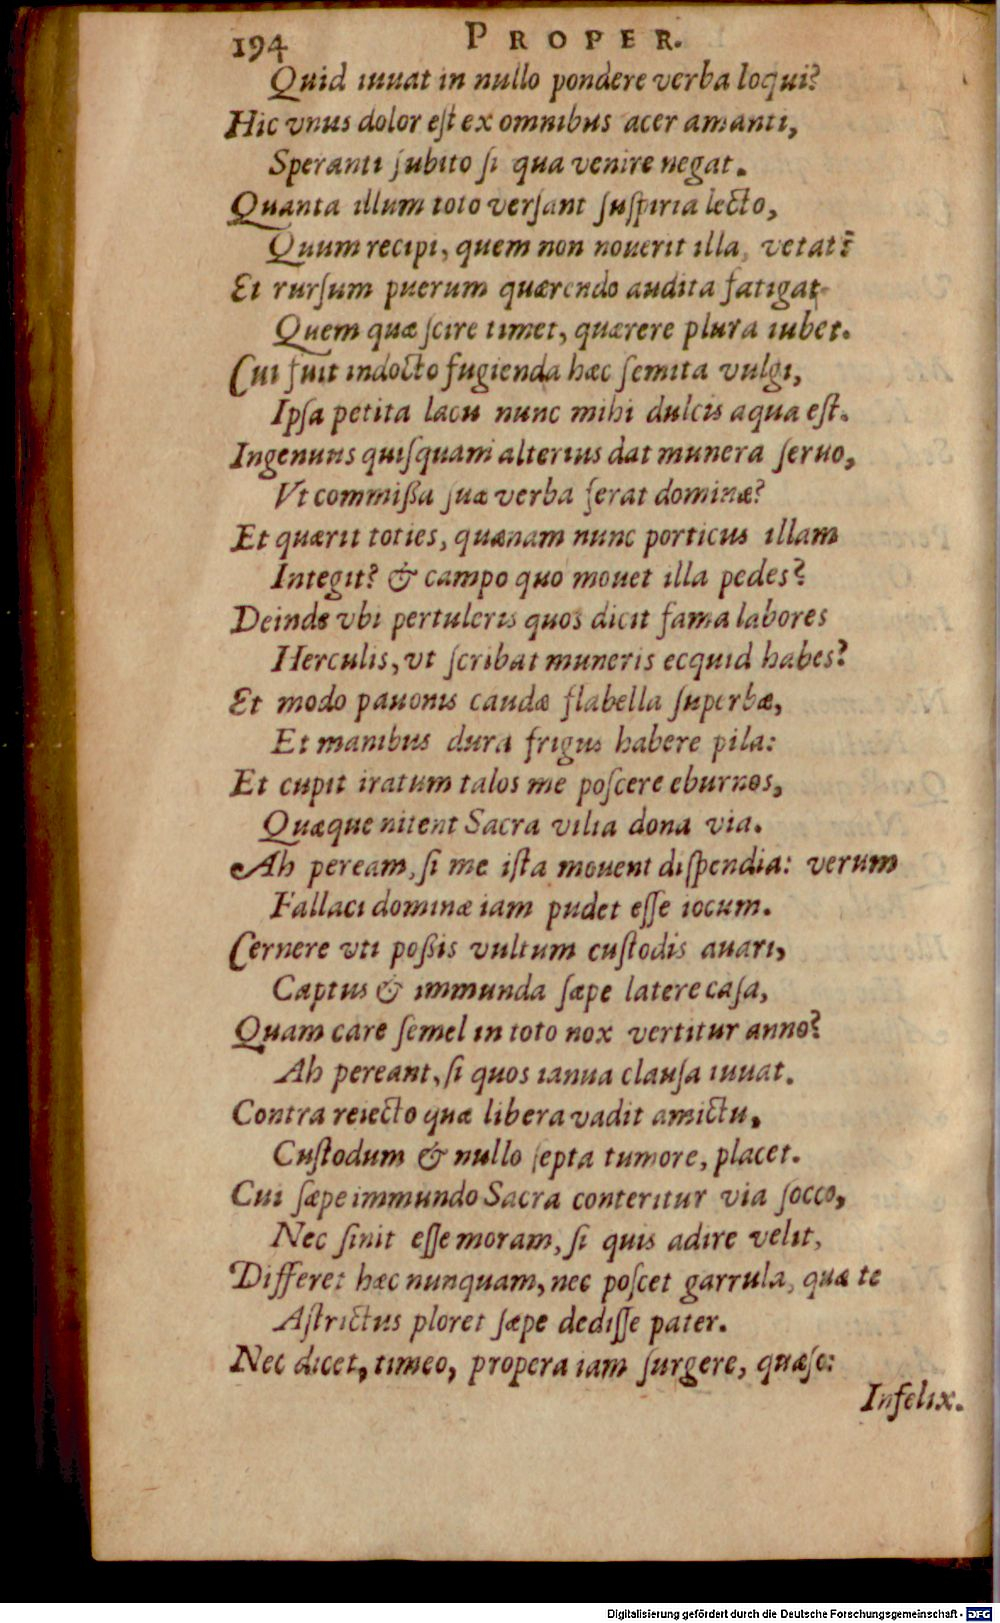 194 PROPER.
Quid iuuat in nullo pondere verba loqui?
Hic vnus dolor eſt ex omnibus acer amanti,
Speranti ſubito ſi qua venire negat.
Quanta illum toto verſant ſuſpiria lecto,
Quum recipi, quem non nouerit illa, vetat?
Et rurſum puerum quærendo audita fatigat
Quem quæ ſcire timet, quærere plura iubet.
Cui fuit indocto fugienda hæc ſemita vulgi,
Ipſa petita lacu nunc mihi dulcis aqua eſt.
Ingenuus quiſquam alterius dat munera ſeruo,
Vt commiſſa ſuæ verba ferat dominæ?
Et quærit toties, quænam nunc porticus illam
Integit? & campo quo mouet illa pedes?
Deinde vbi pertuleris quos dicit fama labores
Herculis, vt ſcribat muneris ecquid habes?
Et modo pauonis caudæ flabella ſuperbæ,
Et manibus dura frigus habere pila:
Et cupit iratum talos me poſcere eburnos,
Quæque nitent Sacra vilia dona via.
Ah peream, ſi me iſta mouent diſpendia: verum
Fallaci dominæ iam pudet eſſe iocum.
Cernere vti poſſis vultum cuſtodis auari,
Captus & immunda ſæpe latere caſa,
Quam care ſemel in toto nox vertitur anno?
Ah pereant, ſi quos ianua clauſa iuuat.
Contra reiecto quæ libera vadit amictu,
Cuſtodum & nullo ſepta tumore, placet.
Cui ſæpe immundo Sacra conteritur via ſocco,
Nec ſinit eſſe moram, ſi quis adire velit,
Differet hæc nunquam, nec poſcet garrula, quæ te
Aſtrictus ploret ſæpe dediſſe pater.
Nec dicet, timeo, propera iam ſurgere, quæſo:
Infelix.
Digitalisierung gefördert durch die Deutsche Forschungsgemeinschaft - DFG